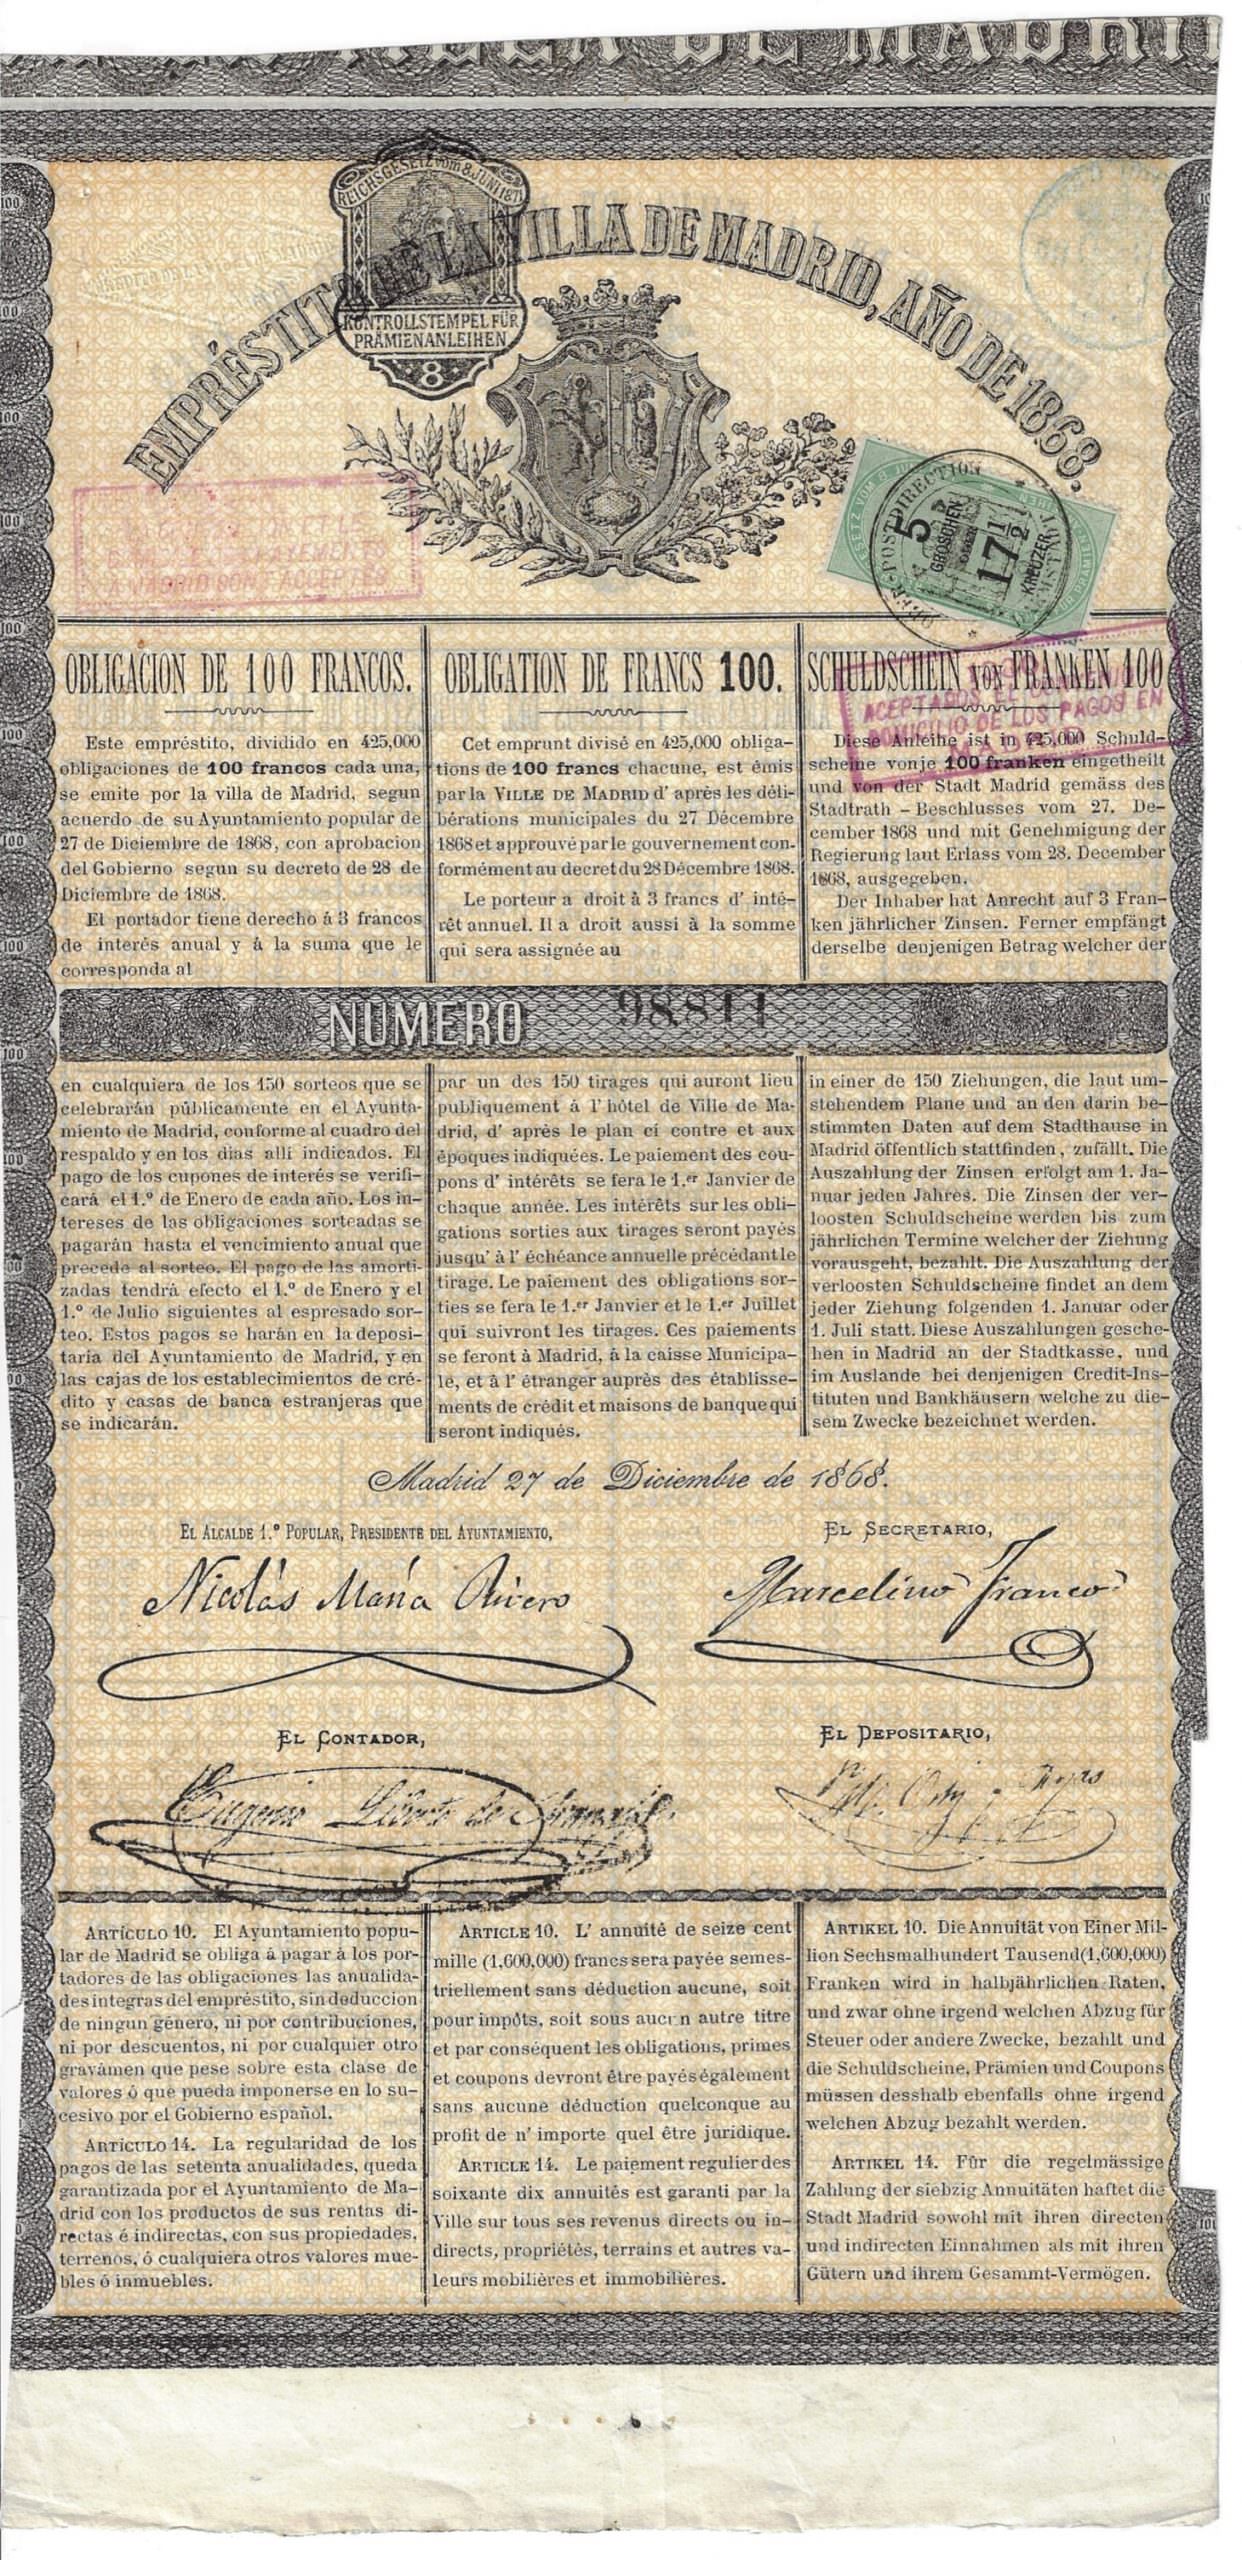 DE MADRI
REICHSGESETZ vom 8. JUNI 1871
KONTROLLSTEMPEL FÜR
PRÄMIENANLEIHEN
8
EMPRÉSTITO DE LA VILLA DE MADRID, AÑO DE 1868.
5
GROSCHEN
ODER
17 1/2
KREUZER
A MADRID SONT ACCEPTÉS
OBLIGACION DE 100 FRANCOS.
Este empréstito, dividido en 425,000
obligaciones de 100 francos cada una,
se emite por la villa de Madrid, segun
acuerdo de su Ayuntamiento popular de
27 de Diciembre de 1868, con aprobacion
del Gobierno segun su decreto de 28 de
Diciembre de 1868.
El portador tiene derecho á 3 francos
de interés anual y á la suma que le
corresponda al
OBLIGATION DE FRANCS 100.
Cet emprunt divisé en 425,000 obliga-
tions de 100 francs chacune, est émis
par la VILLE DE MADRID d' après les déli-
bérations municipales du 27 Décembre
1868 et approuvé par le gouvernement con-
formément au decret du 28 Décembre 1868.
Le porteur a droit à 3 francs d' inté-
rêt annuel. Il a droit aussi à la somme
qui sera assignée au
SCHULDSCHEIN VON FRANKEN 100
DOMICILIO DE LOS PAGOS EN
MADRID
Diese Anleihe ist in 425,000 Schuld-
scheine von je 100 franken eingetheilt
und von der Stadt Madrid gemäss des
Stadtrath - Beschlusses vom 27. De-
cember 1868 und mit Genehmigung der
Regierung laut Erlass vom 28. December
1868, ausgegeben.
Der Inhaber hat Anrecht auf 3 Fran-
ken jährlicher Zinsen. Ferner empfängt
derselbe denjenigen Betrag welcher der
NUMERO 98811
en cualquiera de los 150 sorteos que se
celebrarán públicamente en el Ayunta-
miento de Madrid, conforme al cuadro del
respaldo y en los dias alli indicados. El
pago de los cupones de interés se verifi-
cará el 1.º de Enero de cada año. Los in-
tereses de las obligaciones sorteadas se
pagarán hasta el vencimiento anual que
precede al sorteo. El pago de las amorti-
zadas tendrá efecto el 1.º de Enero y el
1.º de Julio siguientes al espresado sor-
teo. Estos pagos se harán en la deposi-
taria del Ayuntamiento de Madrid, y en
las cajas de los establecimientos de cré-
dito y casas de banca estranjeras que
se indicarán.
par un des 150 tirages qui auront lieu
publiquement á l' hôtel de Ville de Ma-
drid, d' après le plan ci contre et aux
époques indiquées. Le paiement des cou-
pons d' intérêts se fera le 1.er Janvier de
chaque année. Les intérêts sur les obli-
gations sorties aux tirages seront payés
jusqu' à l' échéance annuelle précédant le
tirage. Le paiement des obligations sor-
ties se fera le 1.er Janvier et le 1.er Juillet
qui suivront les tirages. Ces paiements
se feront à Madrid, á la caisse Municipa-
le, et à l' étranger auprès des établisse-
ments de crédit et maisons de banque qui
seront indiqués.
in einer de 150 Ziehungen, die laut um-
stehendem Plane und an den darin be-
stimmten Daten auf dem Stadthause in
Madrid öffentlich stattfinden, zufällt. Die
Auszahlung der Zinsen erfolgt am 1. Ja-
nuar jeden Jahres. Die Zinsen der ver-
loosten Schuldscheine werden bis zum
jährlichen Termine welcher der Ziehung
vorausgeht, bezahlt. Die Auszahlung der
verloosten Schuldscheine findet an dem
jeder Ziehung folgenden 1. Januar oder
1. Juli statt. Diese Auszahlungen gesche-
hen in Madrid an der Stadtkasse, und
im Auslande bei denjenigen Credit-Ins-
tituten und Bankhäusern welche zu die-
sem Zwecke bezeichnet werden.
Madrid 27 de Diciembre de 1868.
EL ALCALDE 1.º POPULAR, PRESIDENTE DEL AYUNTAMIENTO,
Nicolás María Rivero
EL SECRETARIO,
Marcelino Franco
EL CONTADOR,
Eugenio
EL DEPOSITARIO,
ARTÍCULO 10. El Ayuntamiento popu-
lar de Madrid se obliga á pagar á los por-
tadores de las obligaciones las anualida-
des integras del empréstito, sin deduccion
de ningun género, ni por contribuciones,
ni por descuentos, ni por cualquier otro
gravámen que pese sobre esta clase de
valores ó que pueda imponerse en lo su-
cesivo por el Gobierno español.
ARTÍCULO 14. La regularidad de los
pagos de las setenta anualidades, queda
garantizada por el Ayuntamiento de Ma-
drid con los productos de sus rentas di-
rectas é indirectas, con sus propiedades,
terrenos, ó cualquiera otros valores mue-
bles ó inmuebles.
ARTICLE 10. L' annuité de seize cent
mille (1,600,000) francs sera payée semes-
triellement sans déduction aucune, soit
pour impôts, soit sous aucun autre titre
et par conséquent les obligations, primes
et coupons devront être payés également
sans aucune déduction quelconque au
profit de n' importe quel être juridique.
ARTICLE 14. Le paiement regulier des
soixante dix annuités est garanti par la
Ville sur tous ses revenus directs ou in-
directs, propriétés, terrains et autres va-
leurs mobilières et immobilières.
ARTIKEL 10. Die Annuität von Einer Mil-
lion Sechsmalhundert Tausend (1,600,000)
Franken wird in halbjährlichen Raten,
und zwar ohne irgend welchen Abzug für
Steuer oder andere Zwecke, bezahlt und
die Schuldscheine, Prämien und Coupons
müssen desshalb ebenfalls ohne irgend
welchen Abzug bezahlt werden.
ARTIKEL 14. Für die regelmässige
Zahlung der siebzig Annuitäten haftet die
Stadt Madrid sowohl mit ihren directen
und indirecten Einnahmen als mit ihren
Gütern und ihrem Gesammt-Vermögen.